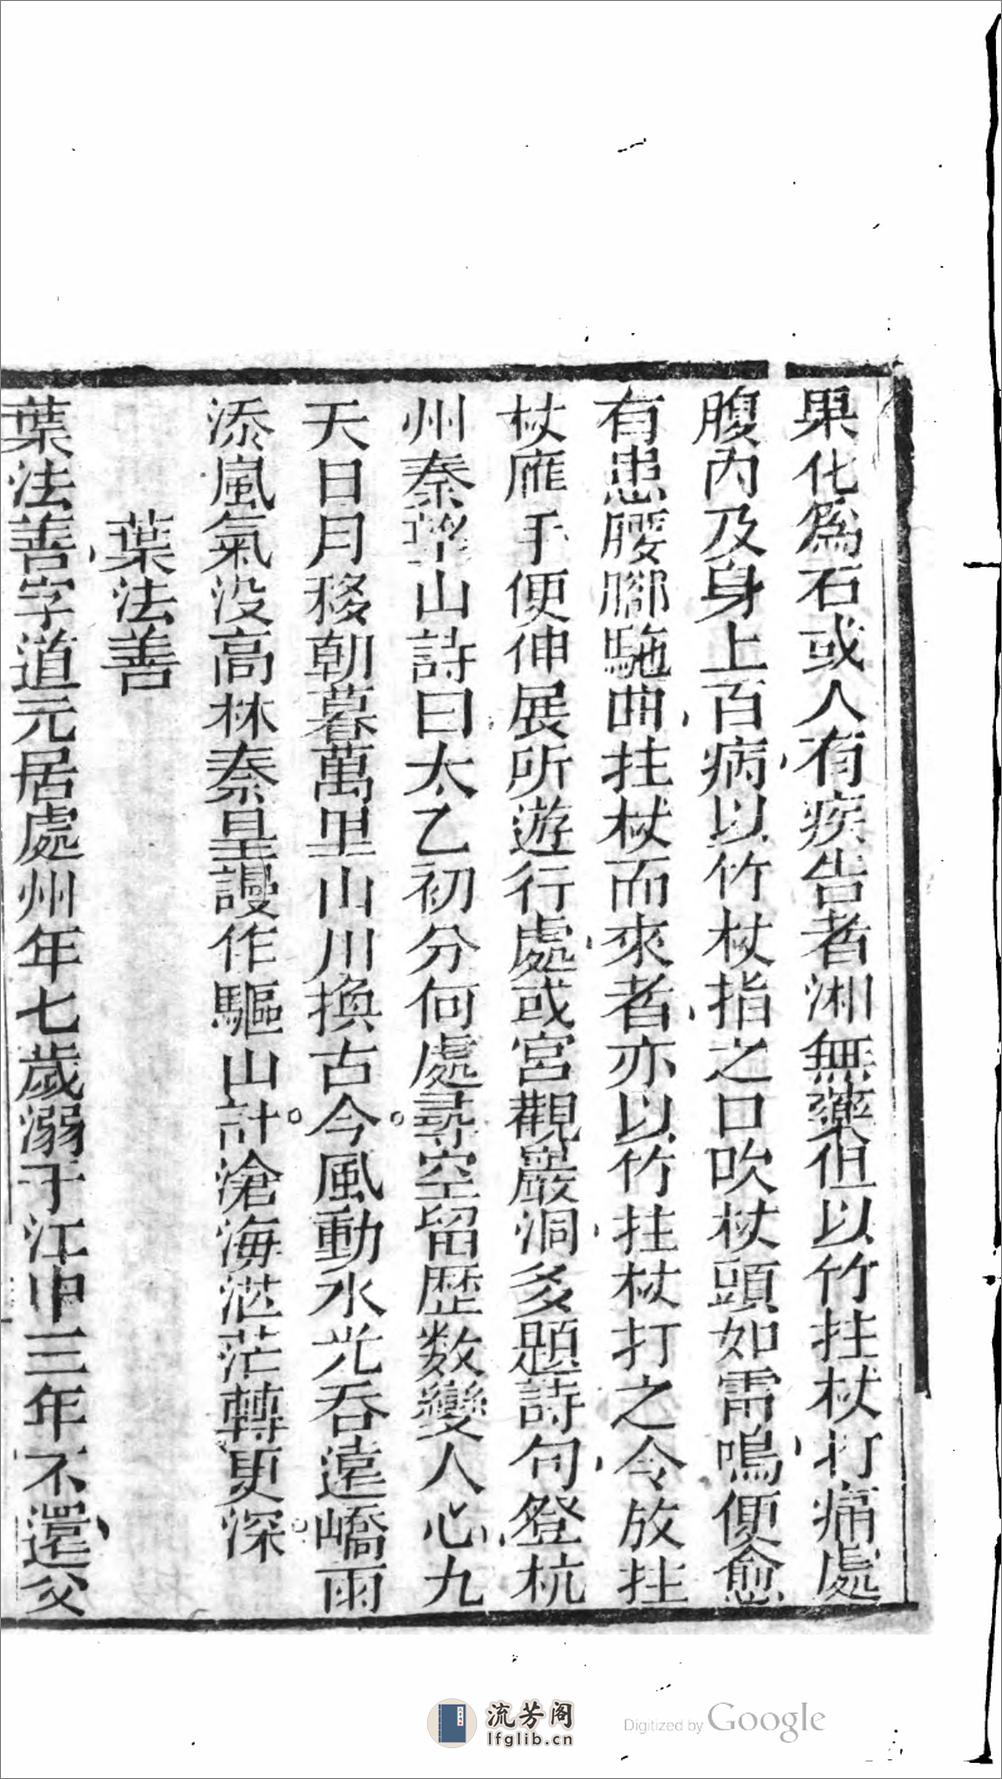 果化為石或人有疾告者湘無藥但以竹拄杖打痛處
腹內及身上百病以竹杖指之口吹杖頭如雷鳴便愈
有患腰腳駞曲拄杖而來者亦以竹拄杖打之令放拄
杖應手便伸展所遊行處或宮觀巖洞多題詩句登杭
州秦望山詩曰太乙初分何處尋空留歴數變人心九
天日月移朝暮萬里山川換古今風動水光吞遠嶠雨
添嵐氣没高林秦皇謾作驅山計滄海茫茫轉更深
葉法善
葉法善字道元居處州年七歲溺于江中三年不還父
流芳阁
lfglib.cn
Digitized by Google